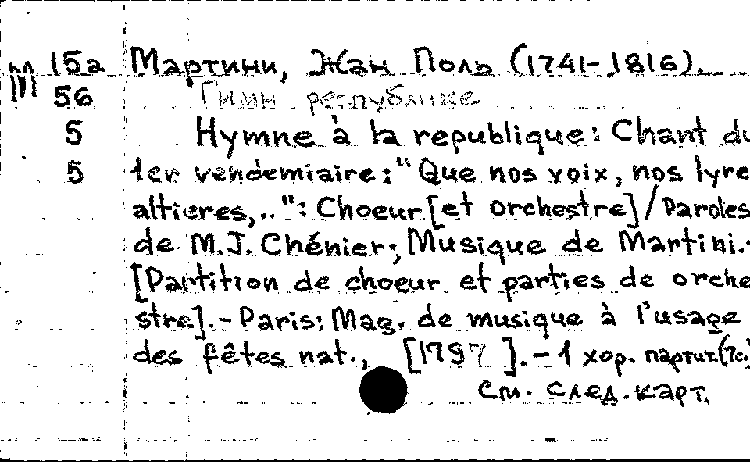 М 15а Мартини, Жан Поль (1741-1816).
56 Гимн республике
5 Hymne à la republique: Chant du
5 1er vendemiaire: "Que nos voix, nos lyre
altieres,..": Choeur [et orchestre] / Paroles
de M.J. Chénier; Musique de Martini.-
[Partition de choeur et parties de orche
stre]. - Paris: Mag. de musique à l'usage
des fêtes nat., [1797]. - 1 хор. партит. (7с.)
См. след. карт.